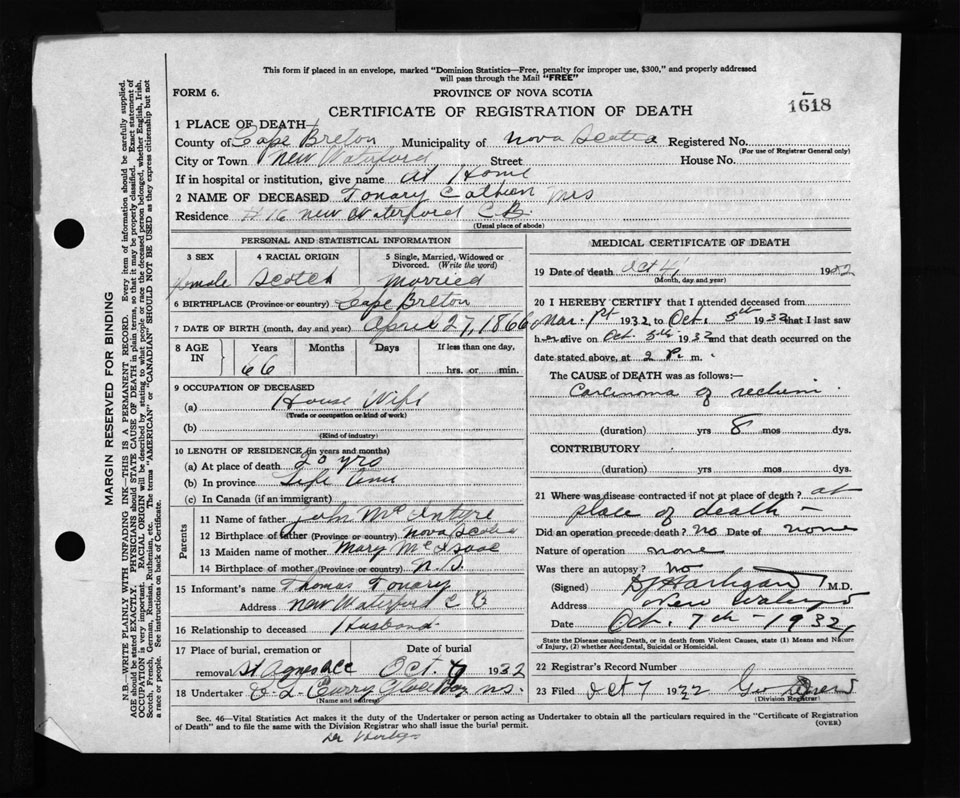 This form if placed in an envelope, marked "Dominion Statistics—Free, penalty for improper use, $300," and properly addressed
will pass through the Mail "FREE"
FORM 6.
PROVINCE OF NOVA SCOTIA
CERTIFICATE OF REGISTRATION OF DEATH
1618
1 PLACE OF DEATH
County of Cape Breton Municipality of Nova Scotia Registered No.
(For use of Registrar General only)
City or Town New Waterford Street House No.
If in hospital or institution, give name At Home
2 NAME OF DECEASED Tonary Mrs
Residence # 16 New Waterford C B.
(Usual place of abode)
PERSONAL AND STATISTICAL INFORMATION
3 SEX 4 RACIAL ORIGIN 5 Single, Married, Widowed or
Divorced. (Write the word)
Female Scotch Married
6 BIRTHPLACE (Province or country) Cape Breton
7 DATE OF BIRTH (month, day and year) April 27, 1866
8 AGE IN Years Months Days If less than one day,
66
hrs. or min.
9 OCCUPATION OF DECEASED
(a) House Wife
(Trade or occupation or kind of work)
(b)
(Kind of industry)
10 LENGTH OF RESIDENCE (in years and months)
(a) At place of death 20 yrs
(b) In province Life time
(c) In Canada (if an immigrant)
Parents
11 Name of father John McIntyre
12 Birthplace of father (Province or country) Nova Scotia
13 Maiden name of mother Mary McIsaac
14 Birthplace of mother (Province or country) N.S.
15 Informant's name Thomas Tonary
Address New Waterford C B
16 Relationship to deceased Husband
17 Place of burial, cremation or Date of burial
removal St Agnes Oct. 1932
18 Undertaker Curry Glace Bay N.S.
(Name and address)
MEDICAL CERTIFICATE OF DEATH
19 Date of death Oct 1932
(Month, day and year)
20 I HEREBY CERTIFY that I attended deceased from
Mar. 1st 1932 to Oct. 5th 1932 that I last saw
her alive on Oct. 5th 1932 and that death occurred on the
date stated above, at 2 P. m.
The CAUSE of DEATH was as follows:—
Carcinoma of rectum
(duration) yrs 8 mos dys.
CONTRIBUTORY
(duration) yrs mos dys.
21 Where was disease contracted if not at place of death? at
place of death —
Did an operation precede death? No Date of none
Nature of operation none
Was there an autopsy? No
(Signed) Hartigan M.D.
Address New Waterford
Date Oct. 7th - 1932
State the Disease causing Death, or in death from Violent Causes, state (1) Means and Nature
of Injury, (2) whether Accidental, Suicidal or Homicidal.
22 Registrar's Record Number
23 Filed Oct 7 1932
(Division Registrar)
Sec. 46—Vital Statistics Act makes it the duty of the Undertaker or person acting as Undertaker to obtain all the particulars required in the "Certificate of Registration
of Death" and to file the same with the Division Registrar who shall issue the burial permit. (OVER)
MARGIN RESERVED FOR BINDING
N.B.—WRITE PLAINLY WITH UNFADING INK—THIS IS A PERMANENT RECORD. Every item of information should be carefully supplied.
AGE should be stated EXACTLY. PHYSICIANS should STATE CAUSE OF DEATH in plain terms, so that it may be properly classified. Exact statement of
OCCUPATION is very important. RACIAL ORIGIN will be described by stating to what people or race the deceased person belonged, whether English, Irish,
Scotch, French, German, Russian, Ruthenian, etc. The terms "AMERICAN" or "CANADIAN" SHOULD NOT BE USED as they express citizenship but not
a race or people. See instructions on back of Certificate.